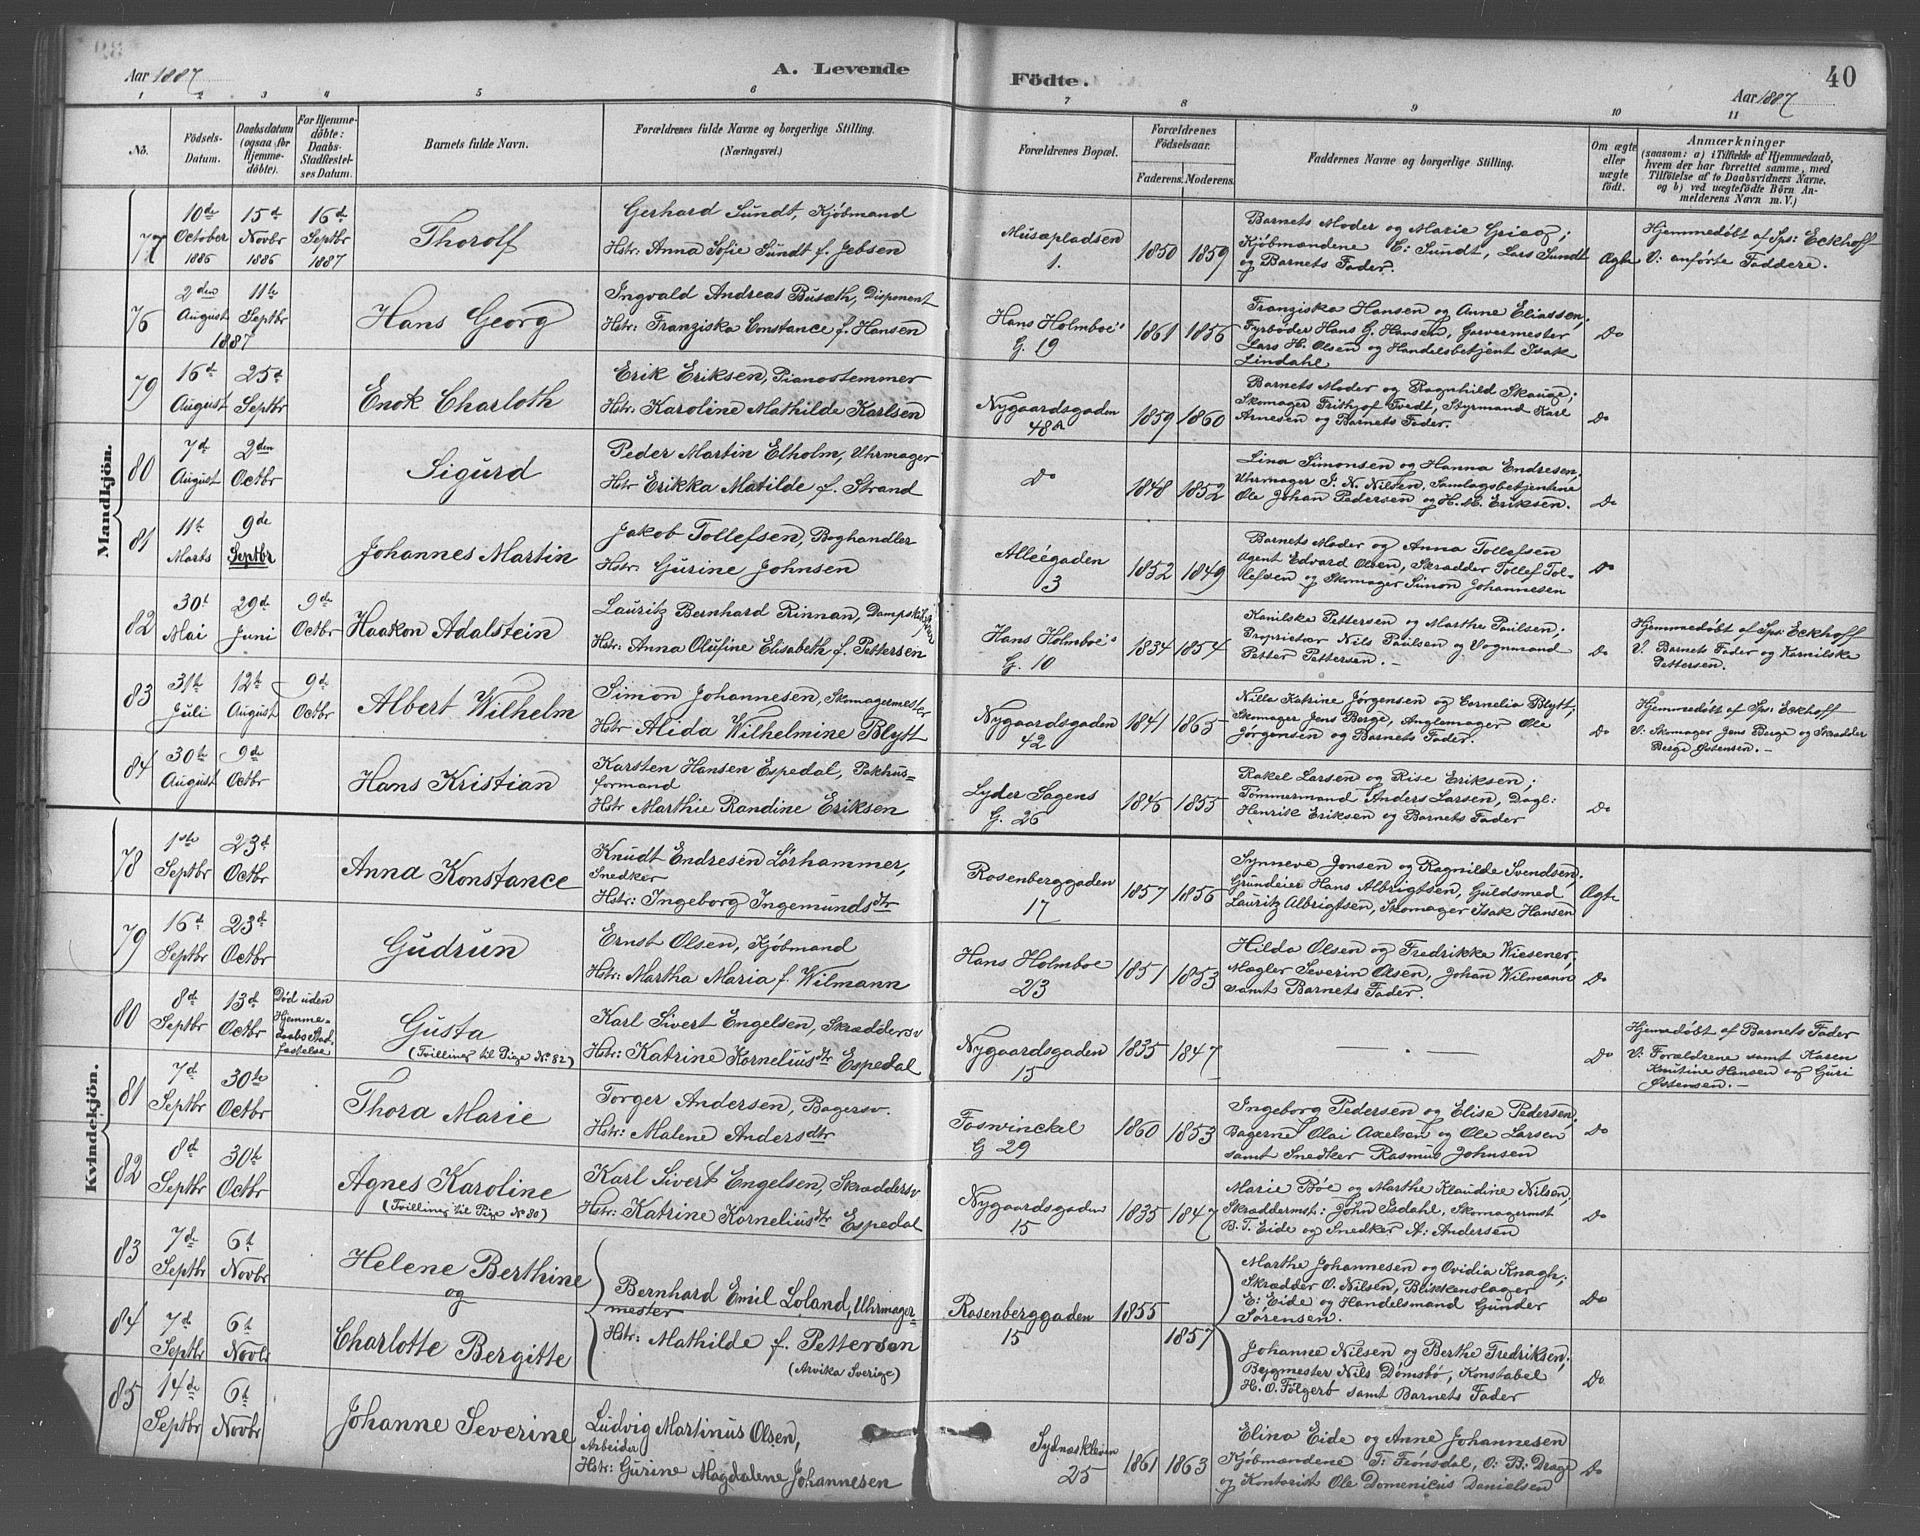 Aar 1887
A. Levende
Födte.
40
Aar 1887
1 2 3 4 5 6 7 8 9 10 11
No.
Födsels-Datum.
Daabsdatum (ogsaa for Hjemme-döbte).
For Hjemme-döbte: Daabs-Stadfæstel-ses Datum.
Barnets fulde Navn.
Forældrenes fulde Navne og borgerlige Stilling.
(Næringsvei.)
Forældrenes Bopæl.
Forældrenes Födselsaar.
Faderens. Moderens.
Faddernes Navne og borgerlige Stilling.
Om ægte eller uægte födt.
Anmærkninger
(saasom: a) i Tilfælde af Hjemmedaab, hvem der har forrettet samme, med Tilföielse af to Daabsvidners Navne, og b) ved uægtefödte Börn An-melderens Navn m. V.)
Mandkjön.
77 10de October 1886 15d Novbr 1886 16d Septbr 1887 Thorolf
Gerhard Sundt, Kjøbmand
Hstr: Anna Sofie Sundt f. Jebsen
Musæpladsen 1. 1850 1859
Barnets Moder og Marie Grieg;
Kjøbmandene C: Sundt, Lars Sundt
og Barnets Fader.
Ægte
Hjemmedøbt af Sps: Eckhoff
V: anførte Faddere.
76 2den August 11te Septbr 1887 Hans Georg
Ingvald Andreas Busæth, Disponent
Hstr: Franziska Constance f. Hansen
Hans Holmboe's G. 19 1861 1856
Franziska Hansen og Anne Eliassen;
Fyrbøder Hans G. Hansen, Garvermester
Lars H. Olsen og Handelsbetjent Isak
Lindahl
Do
79 16d August 25d Septbr Enok Charloth
Erik Eriksen, Pianostemmer
Hstr: Karoline Mathilde Karlsen
Nygaardsgaden 48a 1859 1860
Barnets Moder og Ragnhild Skauge;
Skomager Frithjof Tvedt, Styrmand Karl
Arnesen og Barnets Fader.
Do
80 7d August 2den Octbr Sigurd
Peder Martin Elholm, Uhrmager
Hstr Erikka Matilde f. Strand
Do 1848 1852
Lina Simonsen og Hanna Endresen;
Uhrmager J. N. Nilsen, Samlagsbetjentene
Ole Johan Pedersen og H. M. Eriksen.
Do
81 11te Marts 9de Septbr Johannes Martin
Jakob Tollefsen, Boghandler
Hstr: Gurine Johnsen
Alléegaden 3 1852 1849
Barnets Moder og Anna Tollefsen
Agent Edvard Olsen, Skrædder Tollef Tol-
lefsen og Skomager Simon Johannesen
Do
82 30t Mai 29d Juni 9de Octbr Haakon Adalstein
Lauritz Bernhard Rinnan,
Hstr: Anna Olufine Elisabeth f. Pettersen
Hans Holmboe's G. 10 1834 1854
Kanilske Pettersen og Marthe Paulsen;
Proprietær Nils Paulsen og Vognmand
Petter Pettersen. -
Do
Hjemmedøbt af Sps: Eckhoff
V. Barnets Fader og Karnilske
Pettersen.
83 31te Juli 12te August 9d Octbr Albert Wilhelm
Simon Johannesen, Skomagermester
Hstr: Alida Wilhelmine Blytt
Nygaardsgaden 42 1841 1865
Nilla Katrine Jørgensen og Cornelia Blytt;
Skomager Jens Berge, Anglemager Ole
Jørgensen og Barnets Fader.
Do
Hjemmedøbt af Sps: Eckhoff
V: Skomager Jens Berge og Skrædder
Berge Østensen. -
84 30te August 9de Octbr Hans Kristian
Karsten Hansen Espedal, Pakhus-
formand
Hstr Marthie Randine Eriksen
Lyder Sagens G. 26 1845 1855
Rakel Larsen og Rise Eriksen;
Tømmermand Anders Larsen, Dagl:
Henrik Eriksen og Barnets Fader
Do
Kvindekjön.
78 1ste Septbr 23d Octbr Anna Konstance
Knudt Endresen Lørhammer,
Snedker
Hstr: Ingeborg Ingemundsdtr
Rosenberggaden 17 1857 1856
Synneve Jonsen og Ragnilde Svendsen;
Grundeier Hans Albrigtsen, Guldsmed
Lauritz Albrigtsen, Skomager Isak Hansen
Ægte
79 16d Septbr 23d Octbr Gudrun
Ernst Olsen, Kjøbmand
Hstr: Martha Maria f. Wilmann
Hans Holmboe 23 1851 1853
Hilda Olsen og Fredrikke Wiesener,
Mægler Severin Olsen, Johan Wilmann
samt Barnets Fader.
Do
80 8d Septbr 13d Octbr Død uden Hjemme-daabs Stad-fæstelse Gusta
(Tvilling til Pige No 82)
Karl Sivert Engelsen, Skræddersv
Hstr: Katrine Korneliusdtr Espedal
Nygaardsgaden 15 1835 1847
- - -
Do
Hjemedøbt af Barnets Fader
V: Forældrene samt Karen
Knutine Hansen og Guri
Østensen. -
81 7d Septbr 30te Octbr Thora Marie
Torger Andersen, Bagersv.
Hstr: Malene Andersdtr
Foswinckel G 29 1860 1853
Ingeborg Pedersen og Elise Pedersen,
Bagerne Olai Axelsen og Ole Larsen
samt Snedker Rasmus Johnsen
Do
82 8d Septbr 30te Octbr Agnes Karoline
(Tvilling til Pige No 80)
Karl Sivert Engelsen, Skræddersv
Hstr: Katrine Korneliusdtr Espedal
Nygaardsgaden 15 1835 1847
Marie Bøe og Marthe Klaudine Nilsen;
Skræddermst: John Isdahl, Skomagermst
B. T. Eide og Snedker A: Andersen
Do
83 7de Septbr 6t Novbr Helene Berthine
og
Bernhard Emil Loland, Uhrmager-
mester
Rosenberggaden 15 1855
Marthe Johannesen og Ovidia Knagh;
Skrædder O. Nilsen, Blikkenslager
E: Eide og Handelsmand Gunder
Sørensen.
Do
84 7d Septbr 6t Novbr Charlotte Bergitte
Hstr: Mathilde f. Pettersen
(Arvika Sverige)
1857
Johanne Nilsen og Berthe Fredriksen;
Bygmester Nils Dømsbø, Konstabel
H. O. Følgerø samt Barnets Fader
Do
85 14de Septbr 6t Novbr Johanne Severine
Ludvig Martinus Olsen,
Arbeider
Hstr: Gurine Magdalene Johannesen
Sydnæskleven 25 1861 1863
Elina Eide og Anne Johannesen
Kjøbmændene T: Frønsdal, O: B: Drage
og Kontorist Ole Domenicus Danielsen
Do